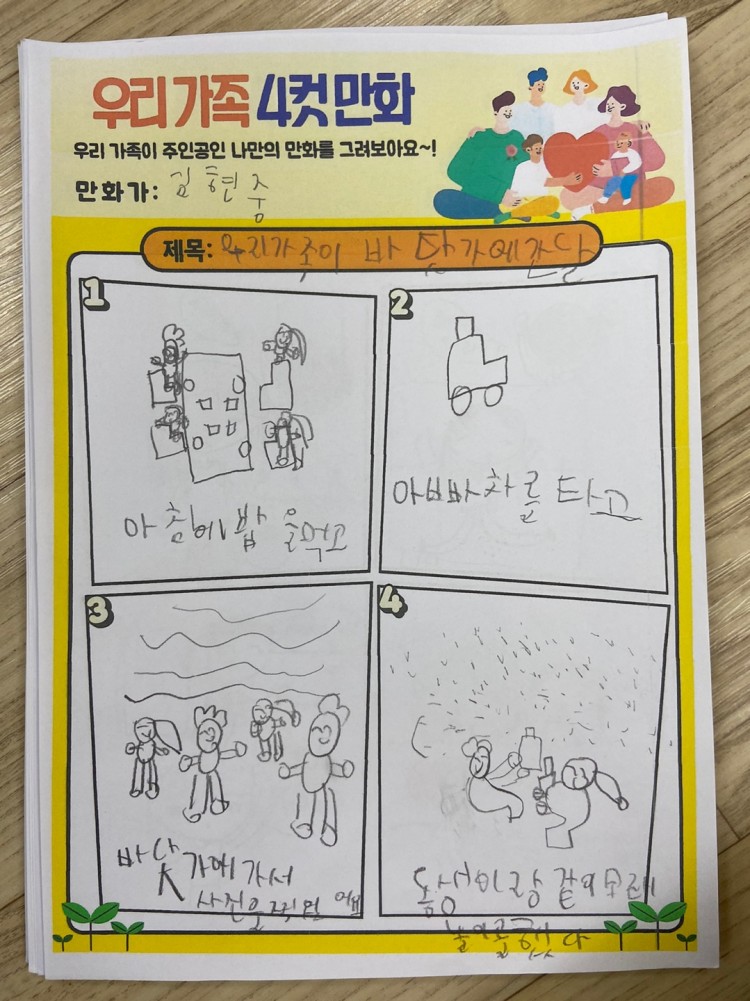 우리가족 4컷만화
우리 가족이 주인공인 나만의 만화를 그려보아요~!
만화가: 김현중
제목: 우리가족이 바닷가에간날
1
2
아침에밥을먹고
아빠차를타고
3
4
바닷가에가서
사진을
동생이랑 같이모래
놀이를했다